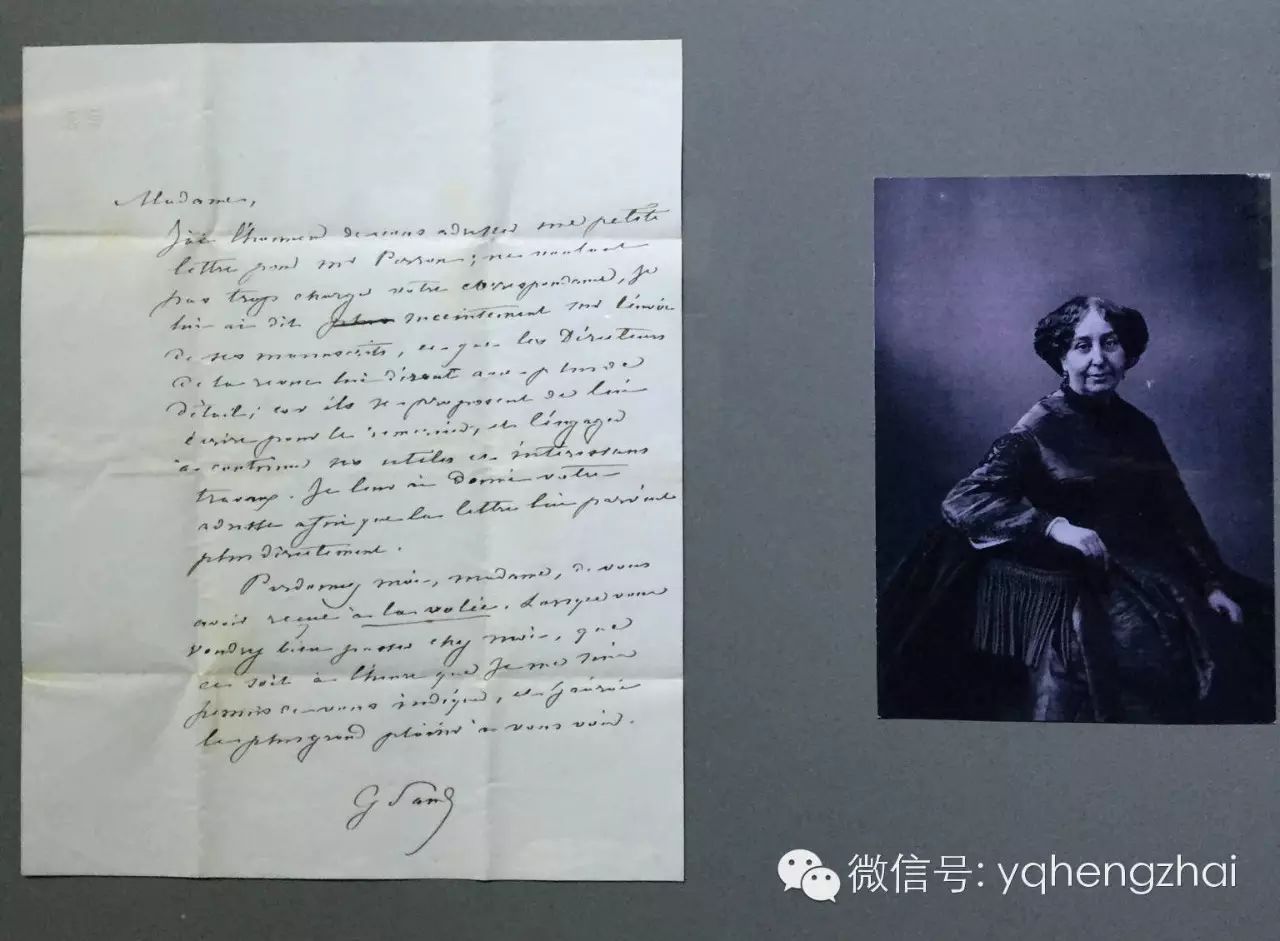 Madame,
J'ai l'honneur de vous adresser une petite
lettre pour Mr Perron; ne voulant
pas trop charger votre correspondance, je
lui ai dit plus succintement sur l'envoi
de ses manuscrits, ce que les Directeurs
de la revue lui diront avec plus de
détail; car ils se proposent de lui
écrire pour le remercier, et l'engager
à continuer ses utiles et intéressans
travaux. Je leur ai donné votre
adresse afin que la lettre lui parvint
plus directement.
Pardonnez moi, madame, de vous
avoir reçue à la volée. Lorsque vous
voudrez bien passer chez moi, que
ce soit à l'heure que je me suis
permis de vous indiquer, et j'aurai
le plus grand plaisir à vous voir.
G Sand
微信号: yqhengzhai